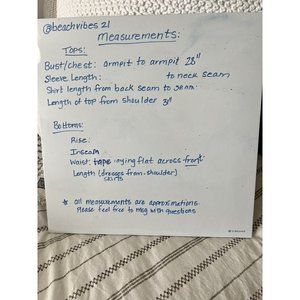 @beachvibes21
Measurements:
Tops:
Bust/chest: armpit to armpit 28"
Sleeve Length: to neck seam
Shirt length from back seam to seam:
Length of top from shoulder 31"
Bottoms:
Rise:
Inseam
Waist: tape laying flat across front
Length (dresses from shoulder)
skirts
* all measurements are approximations
Please feel free to msg with questions